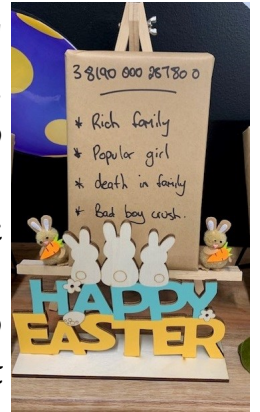 38190 000 287800
* Rich family
* Popular girl
* death in family
* Bad boy crush.
HAPPY
EASTER